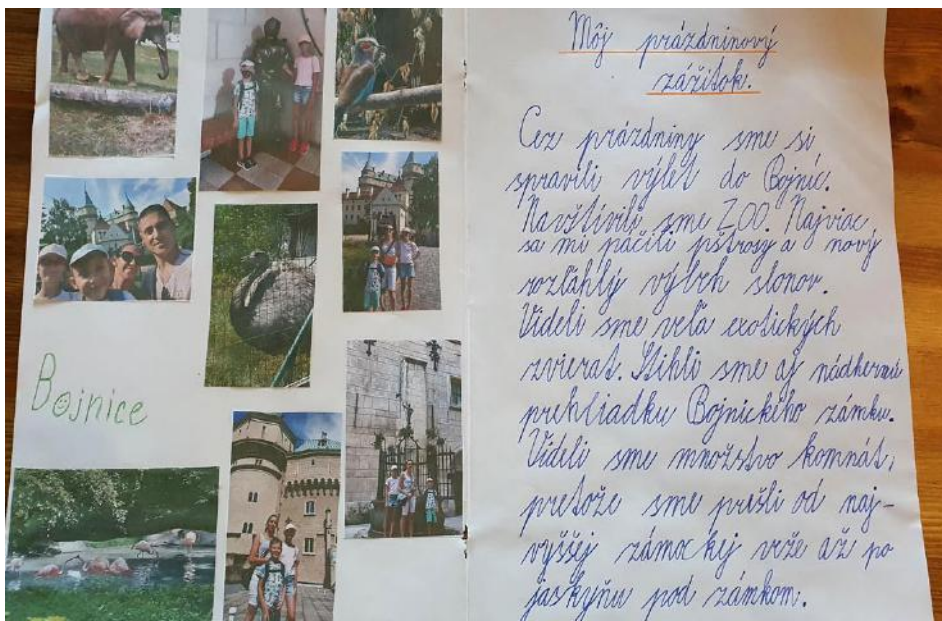 Bojnice
Môj prázdninový
zážitok.
Cez prázdniny sme si
spravili výlet do Bojníc.
Navštívili sme ZOO. Najviac
sa mi páčili pštrosy a nový
rozľahlý výbeh slonov.
Videli sme veľa exotických
zvierat. Stihli sme aj nádhernú
prehliadku Bojnického zámku.
Videli sme množstvo komnát,
pretože sme prešli od naj-
vyššej zámockej veže až po
jaskyňu pod zámkom.